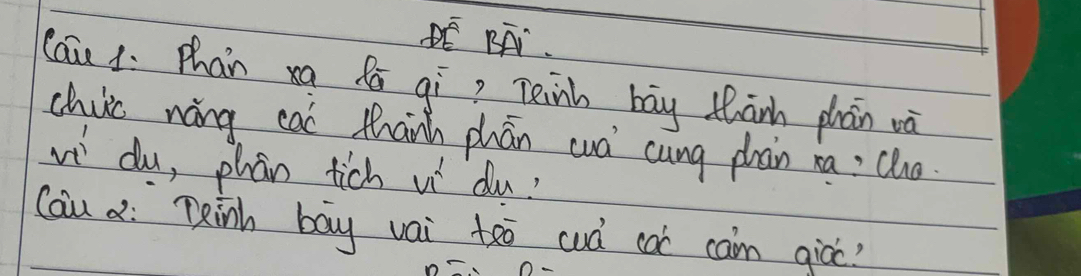 ĐỀ BÀI.
Câu 1: Phản xạ là gì? Trình bày thành phần và
chức năng các thành phần của cung phản xạ? Cho
ví dụ, phân tích ví dụ?
Câu 2: Trình bày vai trò của các cảm giác?